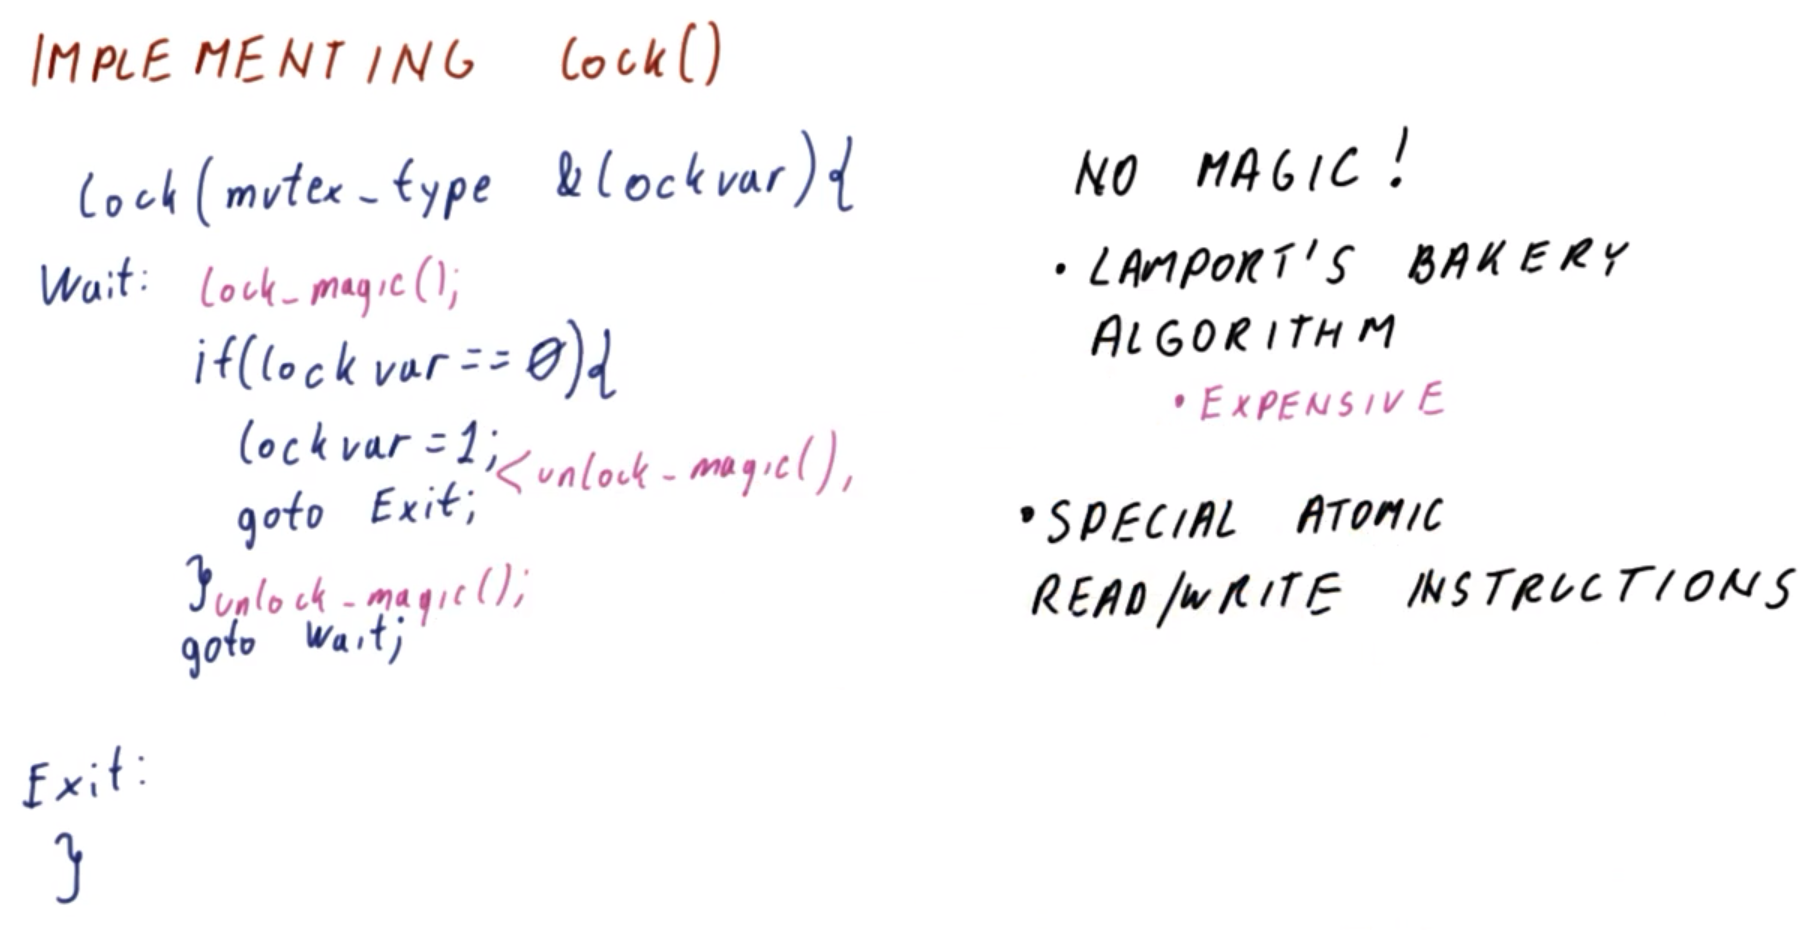 IMPLEMENTING lock()
lock(mutex_type &lockvar){
Wait: lock_magic();
if(lockvar==0){
lockvar=1;
<unlock_magic(),
goto Exit;
}unlock_magic();
goto Wait;
Exit:
}
NO MAGIC!
• LAMPORT'S BAKERY
ALGORITHM
• EXPENSIVE
• SPECIAL ATOMIC
READ/WRITE INSTRUCTIONS